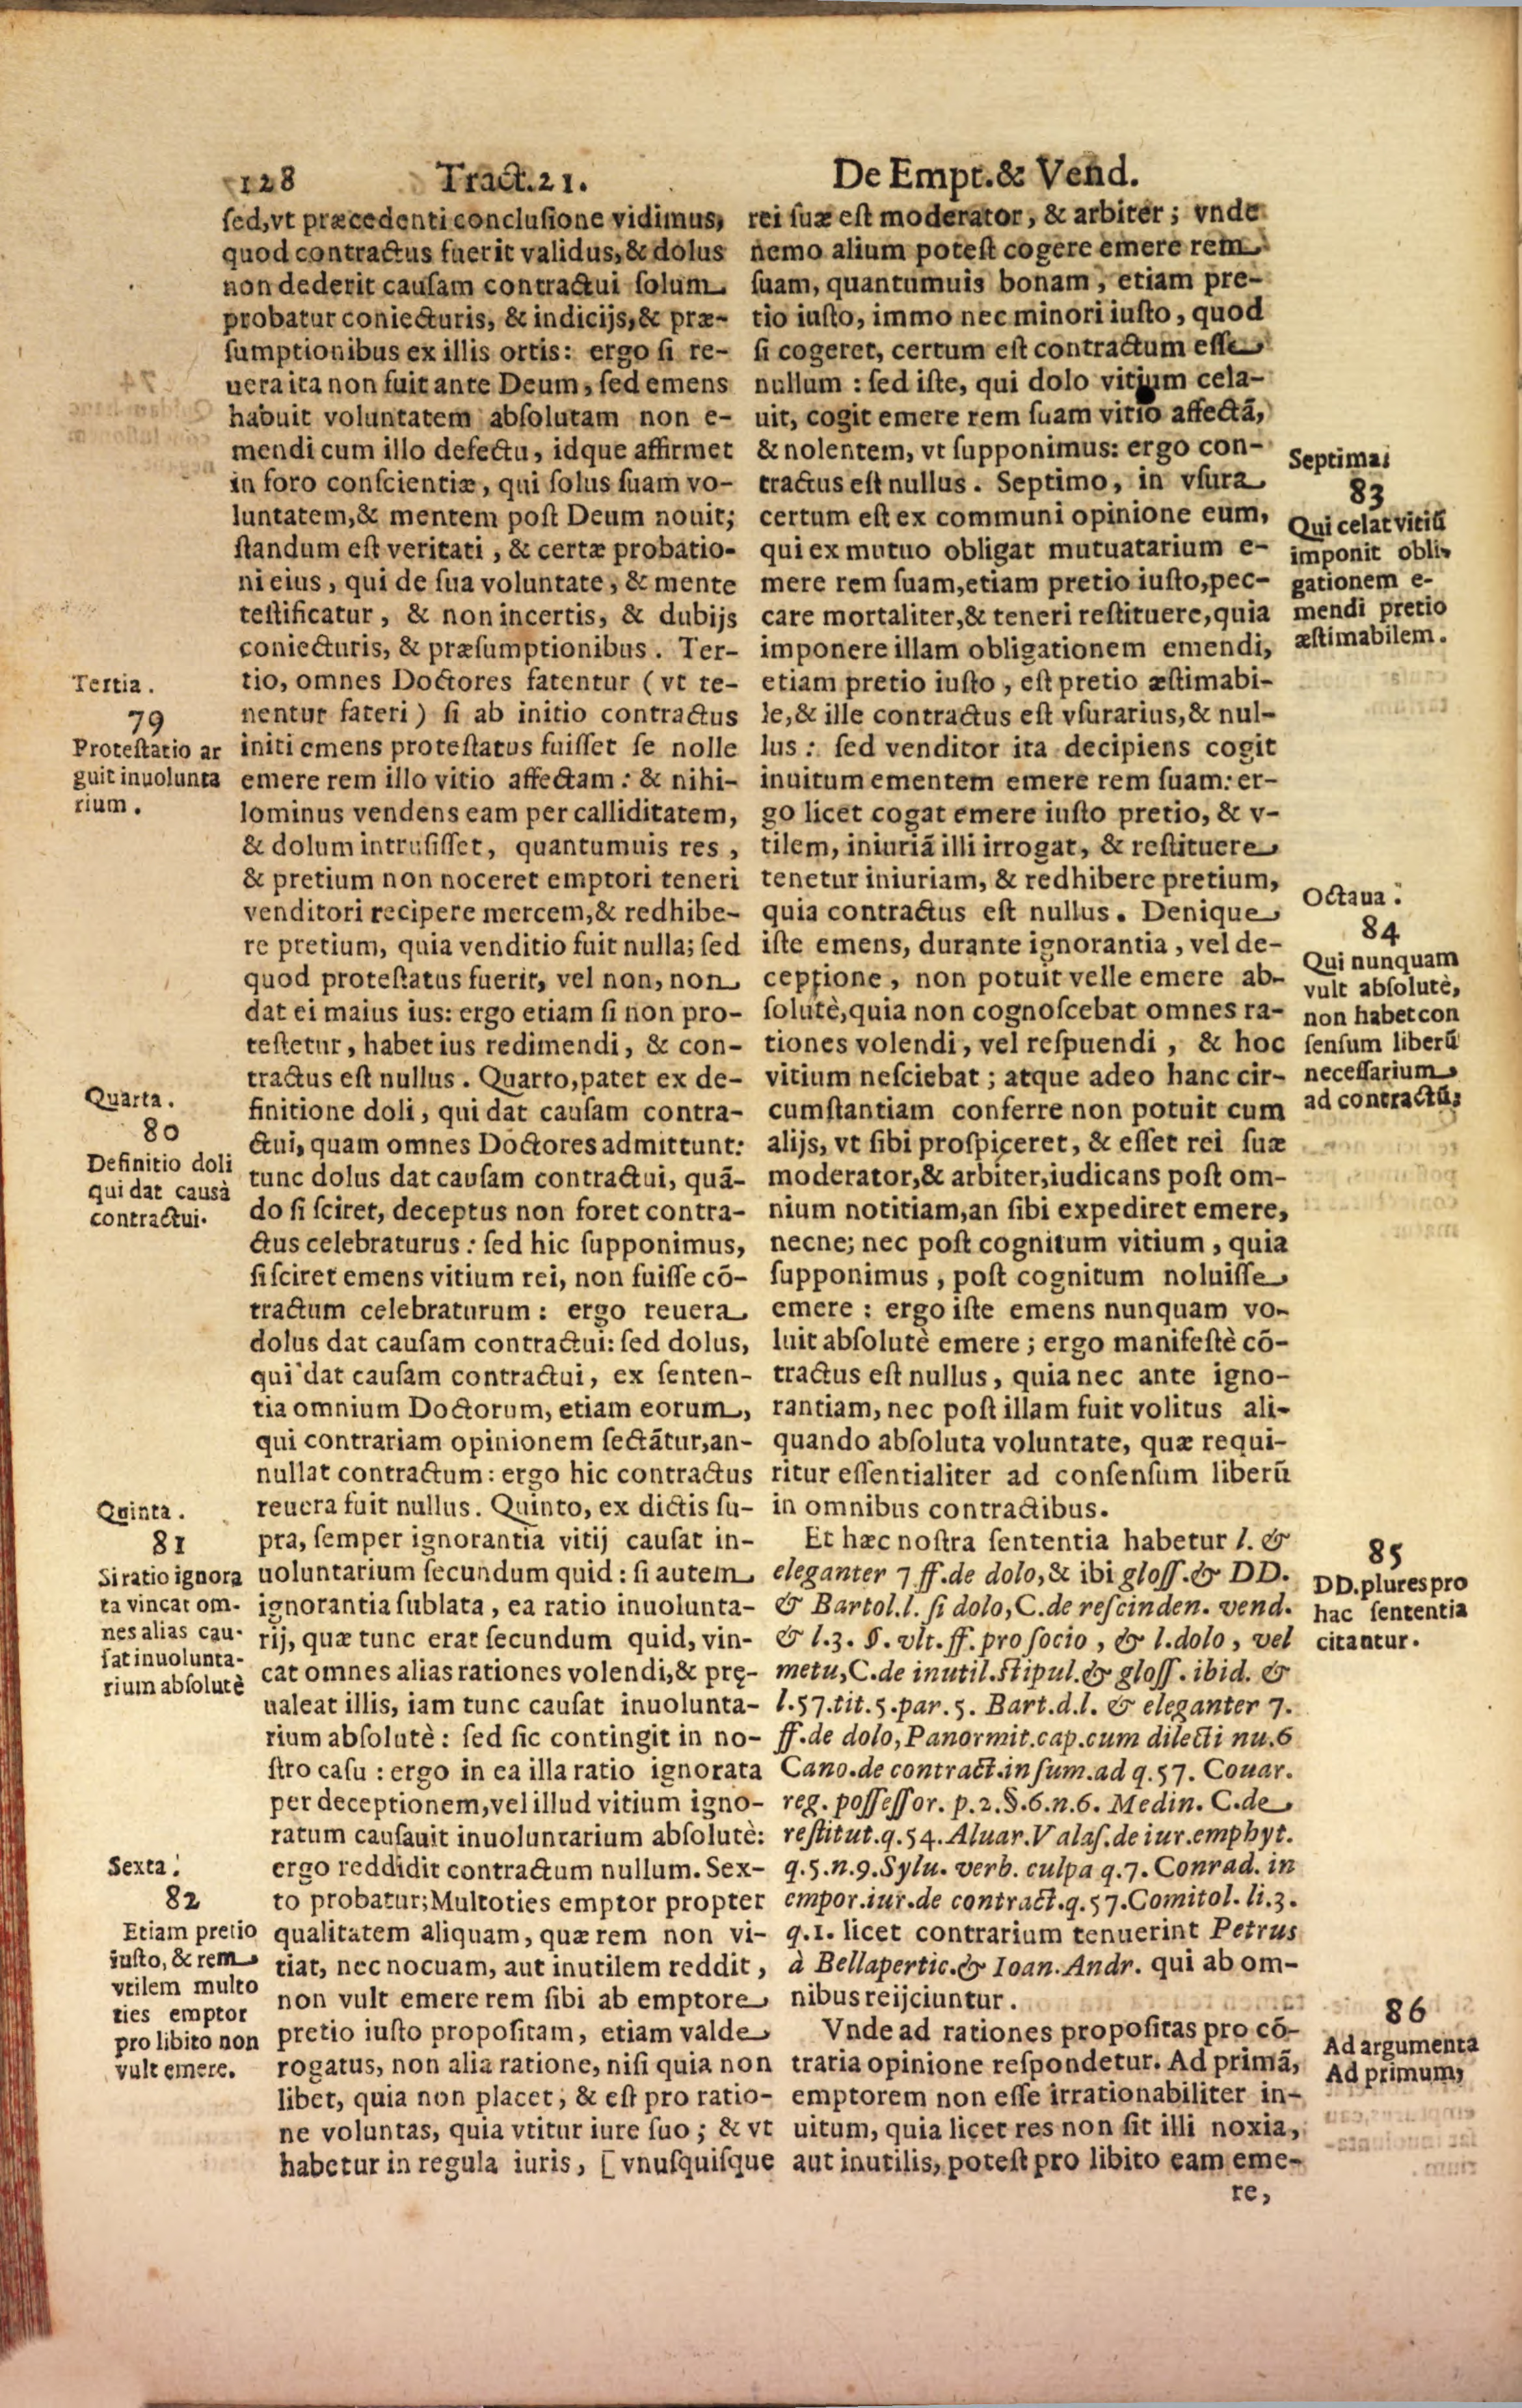 128 Tract.21. De Empt.& Vend.
ſed,vt præcedenti concluſione vidimus,
quod contractus fuerit validus,& dolus
non dederit cauſam contractui ſolum
probatur coniecturis, & indicijs,& præ-
ſumptionibus ex illis ortis: ergo ſi re-
uera ita non fuit ante Deum, ſed emens
habuit voluntatem abſolutam non e-
mendi cum illo defectu, idque affirmet
in foro conſcientiæ, qui ſolus ſuam vo-
luntatem,& mentem poſt Deum nouit;
ſtandum eſt veritati, & certæ probatio-
ni eius, qui de ſua voluntate, & mente
teſtificatur, & non incertis, & dubijs
coniecturis, & præſumptionibus. Ter-
tio, omnes Doctores fatentur (vt te-
nentur fateri) ſi ab initio contractus
initi emens proteſtatus fuiſſet ſe nolle
emere rem illo vitio affectam: & nihi-
lominus vendens eam per calliditatem,
& dolum intruſiſſet, quantumuis res,
& pretium non noceret emptori teneri
venditori recipere mercem,& redhibe-
re pretium, quia venditio fuit nulla; ſed
quod proteſtatus fuerit, vel non, non
dat ei maius ius: ergo etiam ſi non pro-
teſtetur, habet ius redimendi, & con-
tractus eſt nullus. Quarto,patet ex de-
finitione doli, qui dat cauſam contra-
ctui, quam omnes Doctores admittunt:
tunc dolus dat cauſam contractui, quã-
do ſi ſciret, deceptus non foret contra-
ctus celebraturus: ſed hic ſupponimus,
ſi ſciret emens vitium rei, non fuiſſe cõ-
tractum celebraturum: ergo reuera
dolus dat cauſam contractui: ſed dolus,
qui dat cauſam contractui, ex ſenten-
tia omnium Doctorum, etiam eorum,
qui contrariam opinionem ſectãtur,an-
nullat contractum: ergo hic contractus
reuera fuit nullus. Quinto, ex dictis ſu-
pra, ſemper ignorantia vitij cauſat in-
uoluntarium ſecundum quid: ſi autem
ignorantia ſublata, ea ratio inuolunta-
rij, quæ tunc erat ſecundum quid, vin-
cat omnes alias rationes volendi,& prę-
ualeat illis, iam tunc cauſat inuolunta-
rium abſolutè: ſed ſic contingit in no-
ſtro caſu: ergo in ea illa ratio ignorata
per deceptionem,vel illud vitium igno-
ratum cauſauit inuoluntarium abſolutè:
ergo reddidit contractum nullum. Sex-
to probatur;Multoties emptor propter
qualitatem aliquam, quæ rem non vi-
tiat, nec nocuam, aut inutilem reddit,
non vult emere rem ſibi ab emptore
pretio iuſto propoſitam, etiam valde
rogatus, non alia ratione, niſi quia non
libet, quia non placet, & eſt pro ratio-
ne voluntas, quia vtitur iure ſuo; & vt
habetur in regula iuris, [vnuſquiſque
Tertia.
79
Proteſtatio ar
guit inuolunta
rium.
Quarta.
80
Definitio doli
qui dat causà
contractui.
Quinta.
81
Si ratio ignora
ta vincat om-
nes alias cau-
ſat inuolunta-
rium abſolutè
Sexta.
82
Etiam pretio
iuſto, & rem
vtilem multo
ties emptor
pro libito non
vult emere.
rei ſuæ eſt moderator, & arbiter; vnde
nemo alium poteſt cogere emere rem
ſuam, quantumuis bonam, etiam pre-
tio iuſto, immo nec minori iuſto, quod
ſi cogeret, certum eſt contractum eſſe
nullum: ſed iſte, qui dolo vitium cela-
uit, cogit emere rem ſuam vitio affectã,
& nolentem, vt ſupponimus: ergo con-
tractus eſt nullus. Septimo, in vſura
certum eſt ex communi opinione eum,
qui ex mutuo obligat mutuatarium e-
mere rem ſuam,etiam pretio iuſto,pec-
care mortaliter,& teneri reſtituere,quia
imponere illam obligationem emendi,
etiam pretio iuſto, eſt pretio æſtimabi-
le,& ille contractus eſt vſurarius,& nul-
lus: ſed venditor ita decipiens cogit
inuitum ementem emere rem ſuam: er-
go licet cogat emere iuſto pretio, & v-
tilem, iniuriã illi irrogat, & reſtituere
tenetur iniuriam, & redhibere pretium,
quia contractus eſt nullus. Denique
iſte emens, durante ignorantia, vel de-
ceptione, non potuit velle emere ab-
ſolutè,quia non cognoſcebat omnes ra-
tiones volendi, vel reſpuendi, & hoc
vitium neſciebat; atque adeo hanc cir-
cumſtantiam conferre non potuit cum
alijs, vt ſibi proſpiceret, & eſſet rei ſuæ
moderator,& arbiter,iudicans poſt om-
nium notitiam,an ſibi expediret emere,
necne; nec poſt cognitum vitium, quia
ſupponimus, poſt cognitum noluiſſe
emere: ergo iſte emens nunquam vo-
luit abſolutè emere; ergo manifeſtè cõ-
tractus eſt nullus, quia nec ante igno-
rantiam, nec poſt illam fuit volitus ali-
quando abſoluta voluntate, quæ requi-
ritur eſſentialiter ad conſenſum liberũ
in omnibus contractibus.
Et hæc noſtra ſententia habetur l. &
eleganter 7 ff.de dolo,& ibi gloſſ.& DD.
& Bartol.l. ſi dolo,C.de reſcinden. vend.
& l.3. §. vlt. ff. pro ſocio, & l.dolo, vel
metu,C.de inutil.ſtipul.& gloſſ. ibid. &
l.57.tit.5.par.5. Bart.d.l. & eleganter 7.
ff.de dolo,Panormit.cap.cum dilecti nu.6
Cano.de contract.in ſum.ad q.57. Couar.
reg. poſſeſſor. p.2.§.6.n.6. Medin. C.de
reſtitut.q.54.Aluar.Valaſ.de iur.emphyt.
q.5.n.9.Sylu. verb. culpa q.7. Conrad. in
empor.iur.de contract.q.57.Comitol. li.3.
q.1. licet contrarium tenuerint Petrus
à Bellapertic.& Ioan.Andr. qui ab om-
nibus reijciuntur.
Vnde ad rationes propoſitas pro cõ-
traria opinione reſpondetur. Ad primã,
emptorem non eſſe irrationabiliter in-
uitum, quia licet res non ſit illi noxia,
aut inutilis, poteſt pro libito eam eme-
re,
Septima.
83
Qui celat vitiũ
imponit obli-
gationem e-
mendi pretio
æſtimabilem.
Octaua.
84
Qui nunquam
vult abſolutè,
non habet con
ſenſum liberũ
neceſſarium
ad contractũ.
85
DD.plures pro
hac ſententia
citantur.
86
Ad argumenta
Ad primum,